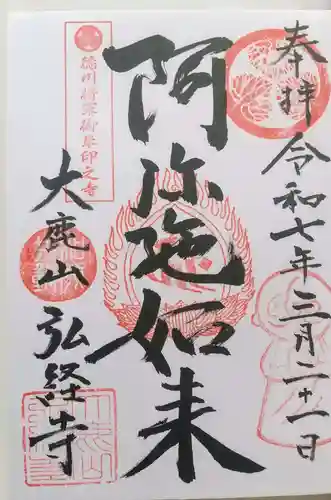 奉拝 令和七年三月二十一日
阿弥陀如来
徳川将軍御朱印之寺
大鹿山 弘経寺